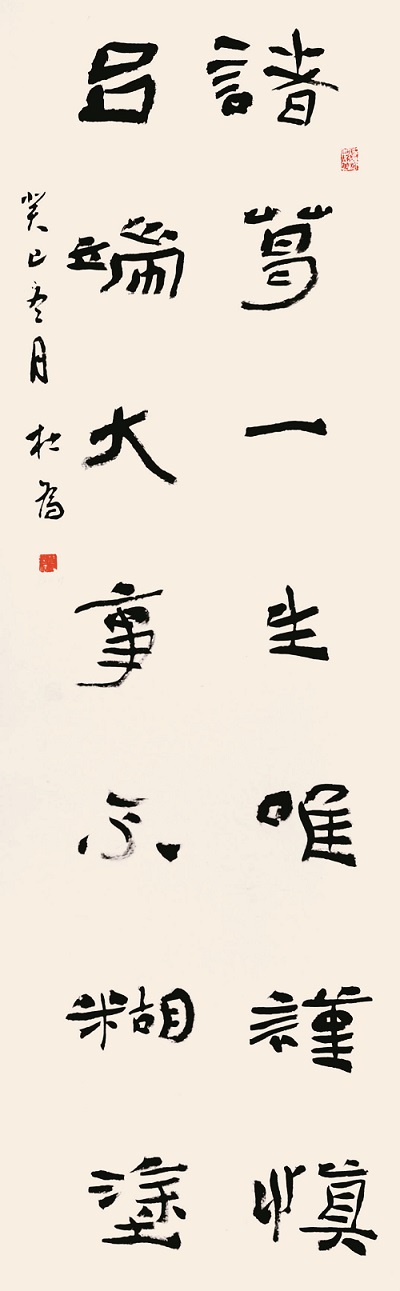 諸葛一生唯謹慎
呂端大事不糊塗
癸巳冬月 杜為